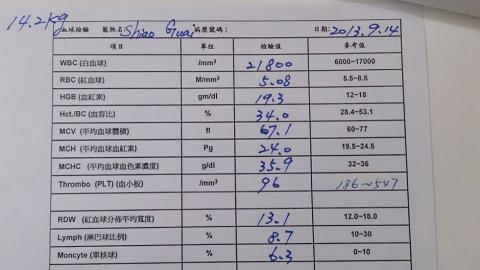 14.2kg
血球檢驗 寵物名: Shiao Guai 病歷號碼: 日期: 2013.9.14
項目 單位 檢驗值 參考值
WBC (白血球) /mm³ 21800 6000~17000
RBC (紅血球) M/mm³ 5.08 5.5~8.5
HGB (血紅素) gm/dl 19.3 12~18
Hct./BC (血容比) % 34.0 28.4~53.1
MCV (平均血球體積) fl 67.1 60~77
MCH (平均血球血紅素) Pg 24.0 19.5~24.5
MCHC (平均血球血色素濃度) g/dl 35.9 32~36
Thrombo (PLT) (血小板) /mm³ 96 186~547
RDW (紅血球分佈平均寬度) % 13.1 12.0~18.0
Lymph (淋巴球比例) % 8.7 10~30
Moncyte (單核球) % 6.3 0~10